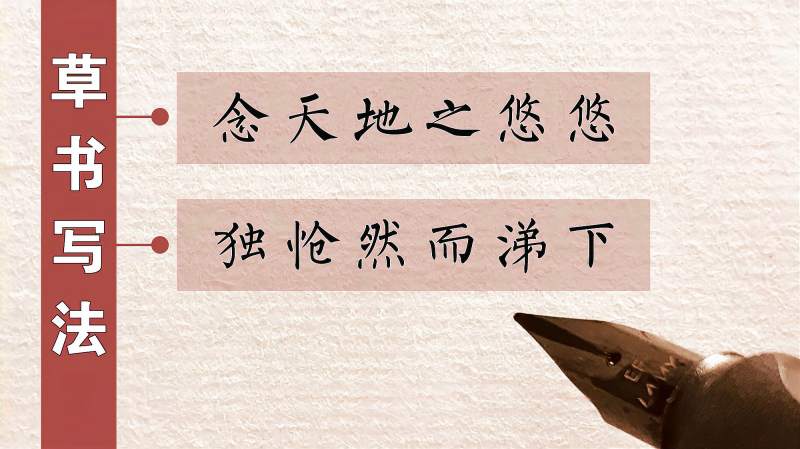 草书写法
念天地之悠悠
独怆然而涕下